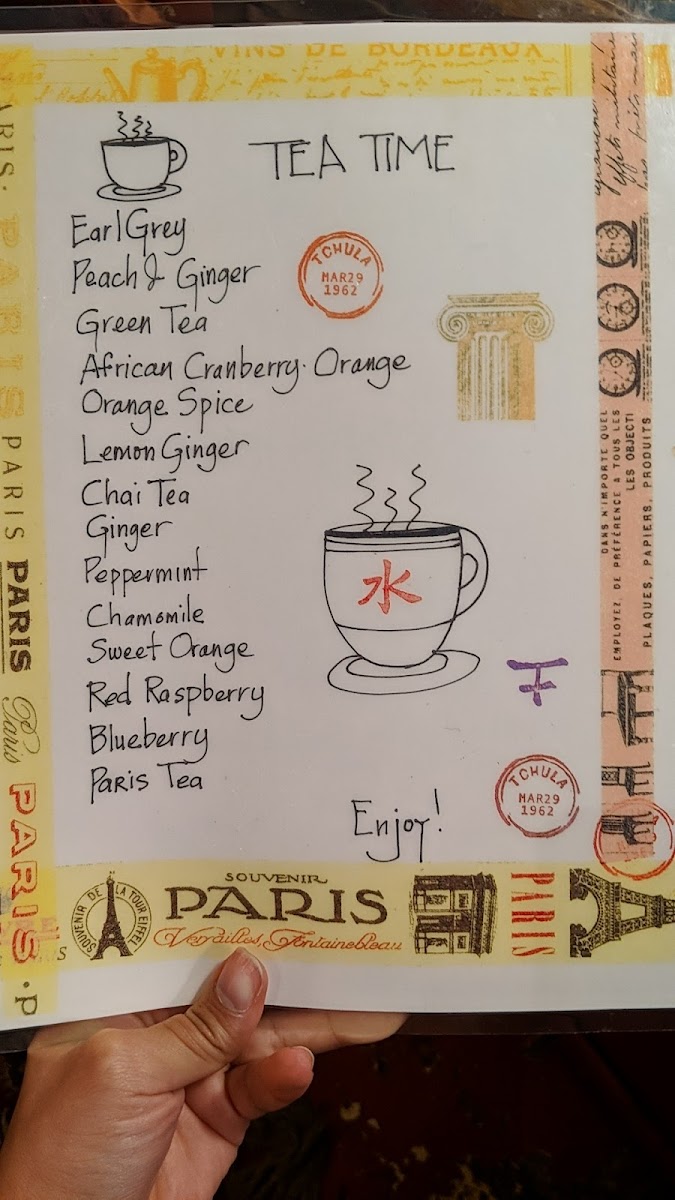 VINS DE BORDEAUX
TEA TIME
Earl Grey
Peach & Ginger
Green Tea
African Cranberry. Orange
Orange Spice
Lemon Ginger
Chai Tea
Ginger
Peppermint
Chamomile
Sweet Orange
Red Raspberry
Blueberry
Paris Tea
TCHULA
MAR 29
1962
水
TCHULA
MAR 29
1962
Enjoy!
PARIS
PARIS
PARIS
Paris
PARIS
DANS N'IMPORTE QUEL
EMPLOYEZ, DE PRÉFÉRENCE À TOUS LES
LES OBJECTI
PLAQUES, PAPIERS, PRODUITS
SOUVENIR DE LA TOUR EIFFEL
SOUVENIR
PARIS
Versailles, Fontainebleau
PARIS